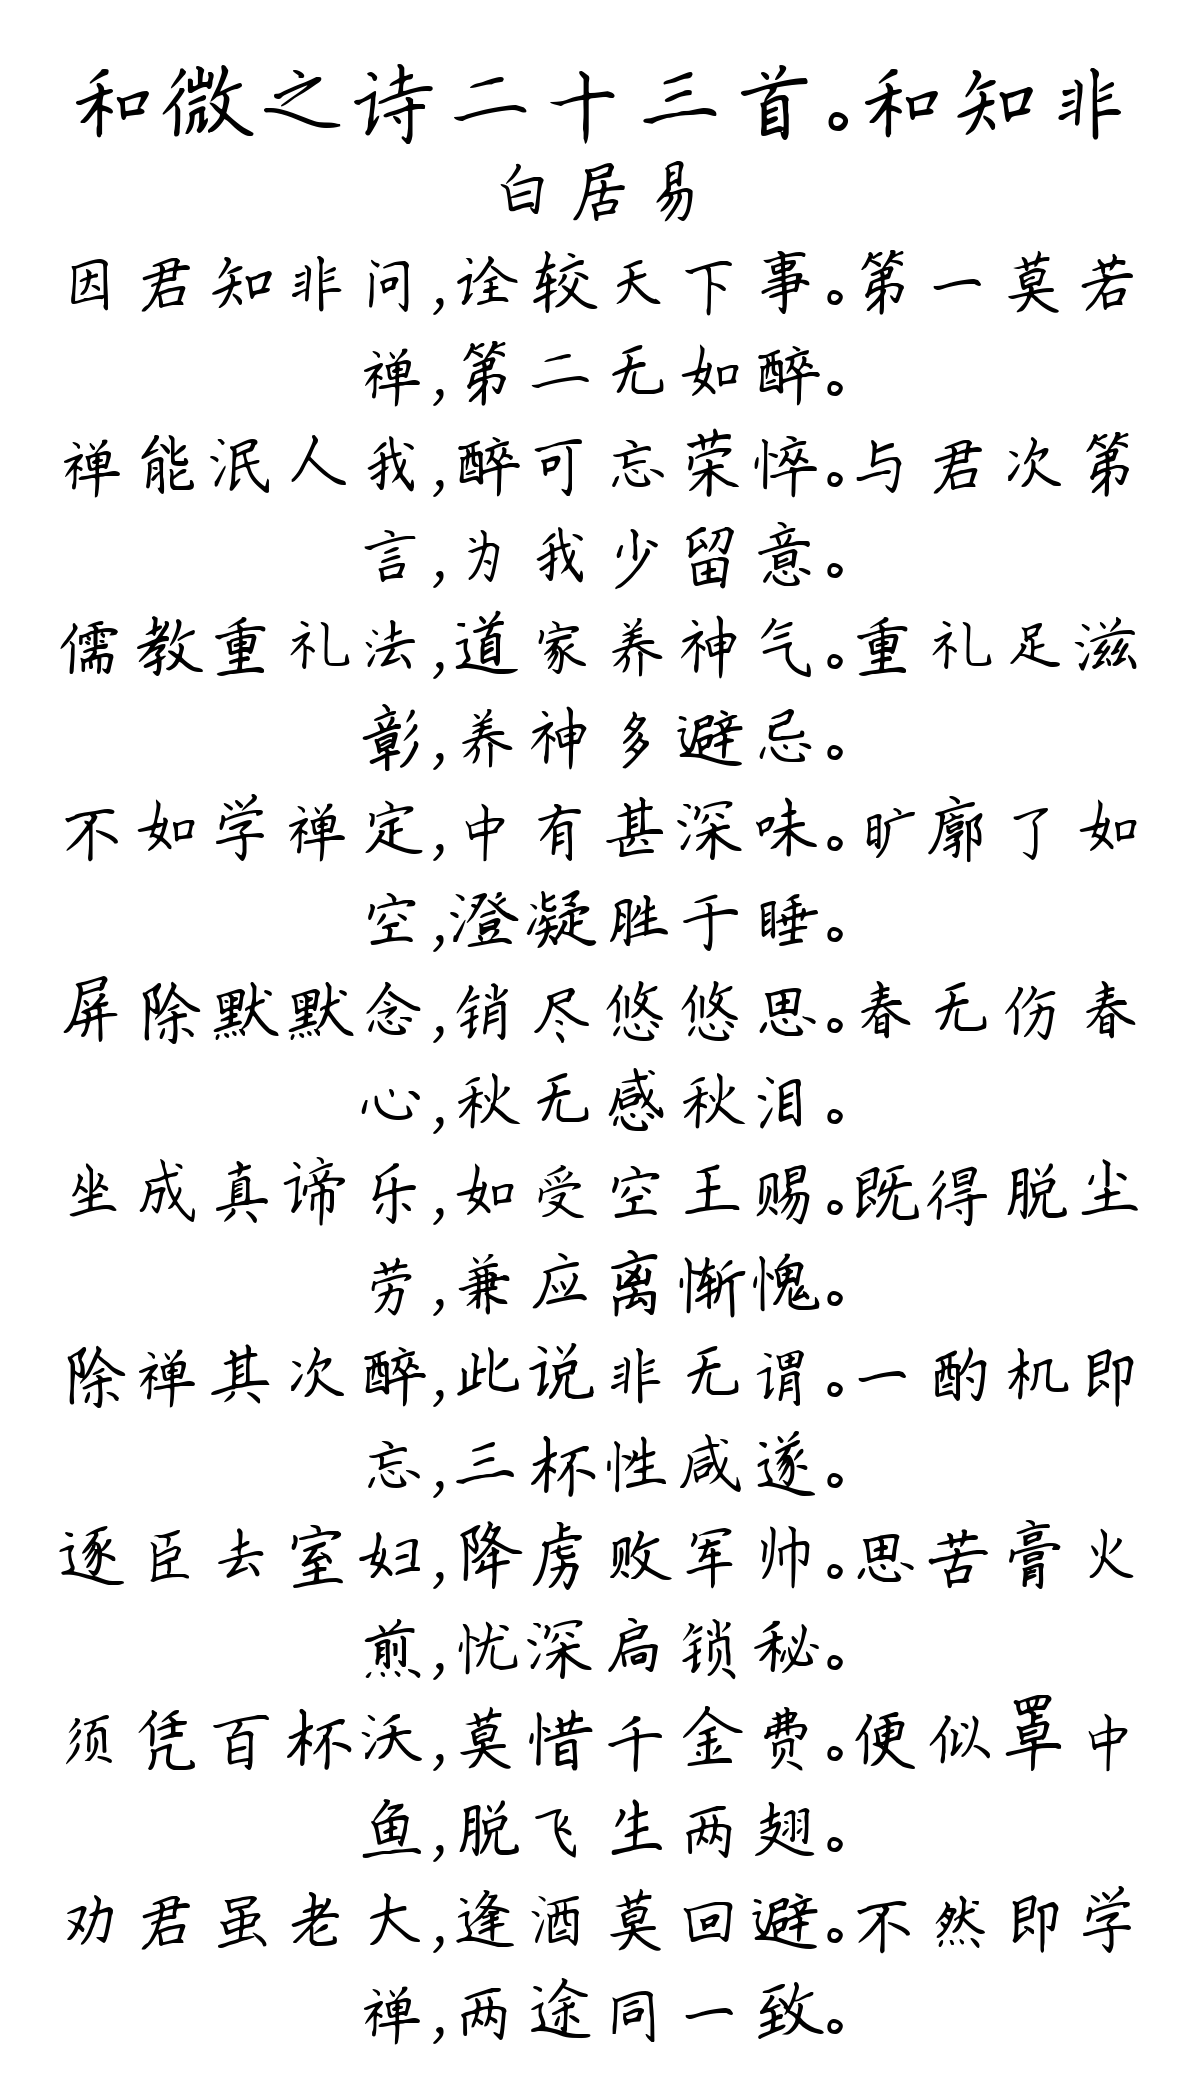 和微之诗二十三首。和知非
白居易
因君知非问,诠较天下事。第一莫若
禅,第二无如醉。
禅能泯人我,醉可忘荣悴。与君次第
言,为我少留意。
儒教重礼法,道家养神气。重礼足滋
彰,养神多避忌。
不如学禅定,中有甚深味。旷廓了如
空,澄凝胜于睡。
屏除默默念,销尽悠悠思。春无伤春
心,秋无感秋泪。
坐成真谛乐,如受空王赐。既得脱尘
劳,兼应离惭愧。
除禅其次醉,此说非无谓。一酌机即
忘,三杯性咸遂。
逐臣去室妇,降虏败军帅。思苦膏火
煎,忧深扃锁秘。
须凭百杯沃,莫惜千金费。便似罩中
鱼,脱飞生两翅。
劝君虽老大,逢酒莫回避。不然即学
禅,两途同一致。